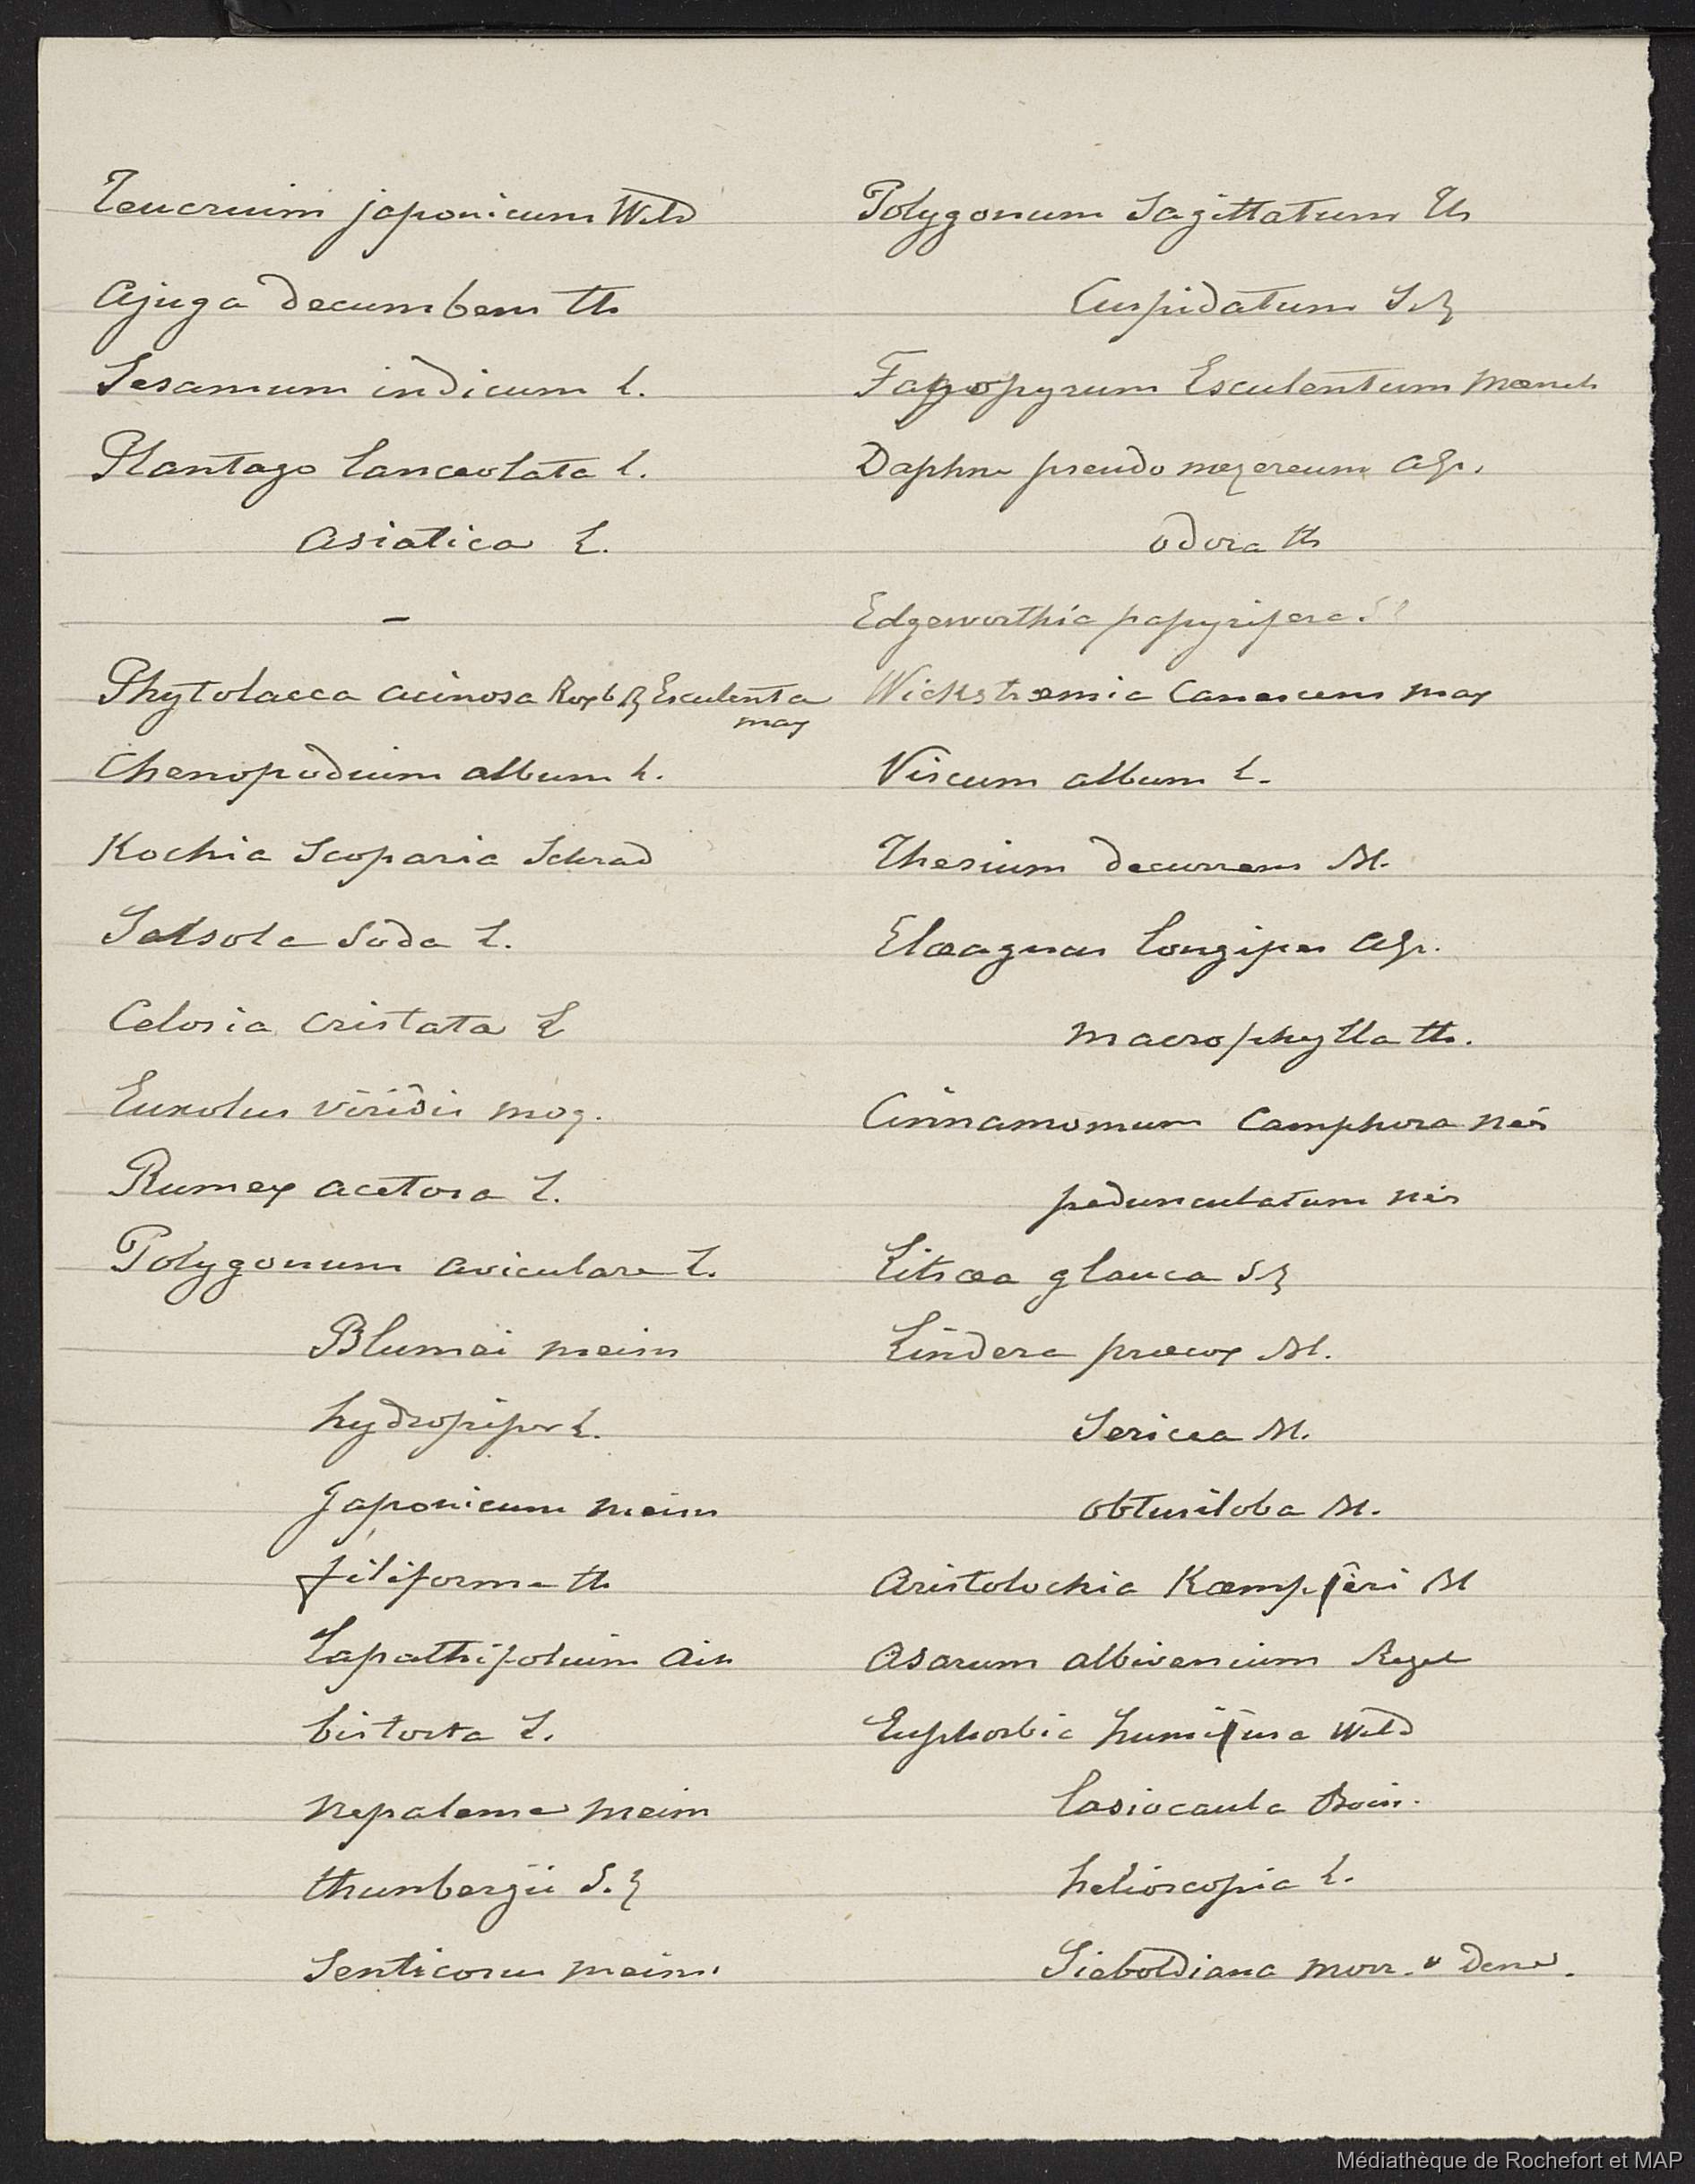 Teucrium japonicum Wild
Ajuga decumbens th
Sesamum indicum L.
Plantago lanceolata L.
asiatica L.
-
Phytolacca acinosa Roxb β Esculenta
max
Chenopodium album L.
Kochia Scoparia Schrad
Salsola Soda L.
Celosia cristata L
Euxolus viridis moq.
Rumex acetosa L.
Polygonum aviculare L.
Blumei meisn
hydropiper L.
Japonicum meisn
filiforme th
Lapathifolium Ait
bistorta L.
nepalense meisn
thunbergii S.Z
Senticosum meisn.
Polygonum Sagittatum th
Cuspidatum S.Z
Fagopyrum Esculentum Mœnch
Daphne pseudo mezereum AGr.
odora th
Edgeworthia papyrifera S
Wickstrœmia Canescens max
Viscum album L.
Thesium decurrens Bl.
Elœagnus longipes AGr.
macrophylla th.
Cinnamomum Camphora nées
pedunculatum nées
Litsœa glauca SZ
Lindera prœcox Bl.
Sericea Bl.
obtusiloba Bl.
Aristolochia Kœmpferi Bl
Asarum albivenium Regel
Euphorbia humifusa Wild
lasiocaula Boiss.
helioscopia L.
Sieboldiana Morr. & Dene.
Médiathèque de Rochefort et MAP